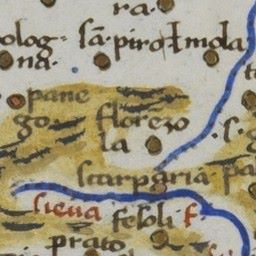 ra·
olog· sã·piro Imola
na·
pane
go florezo
la ·s·g
scarparia· pa
siena feſoli f·
prato